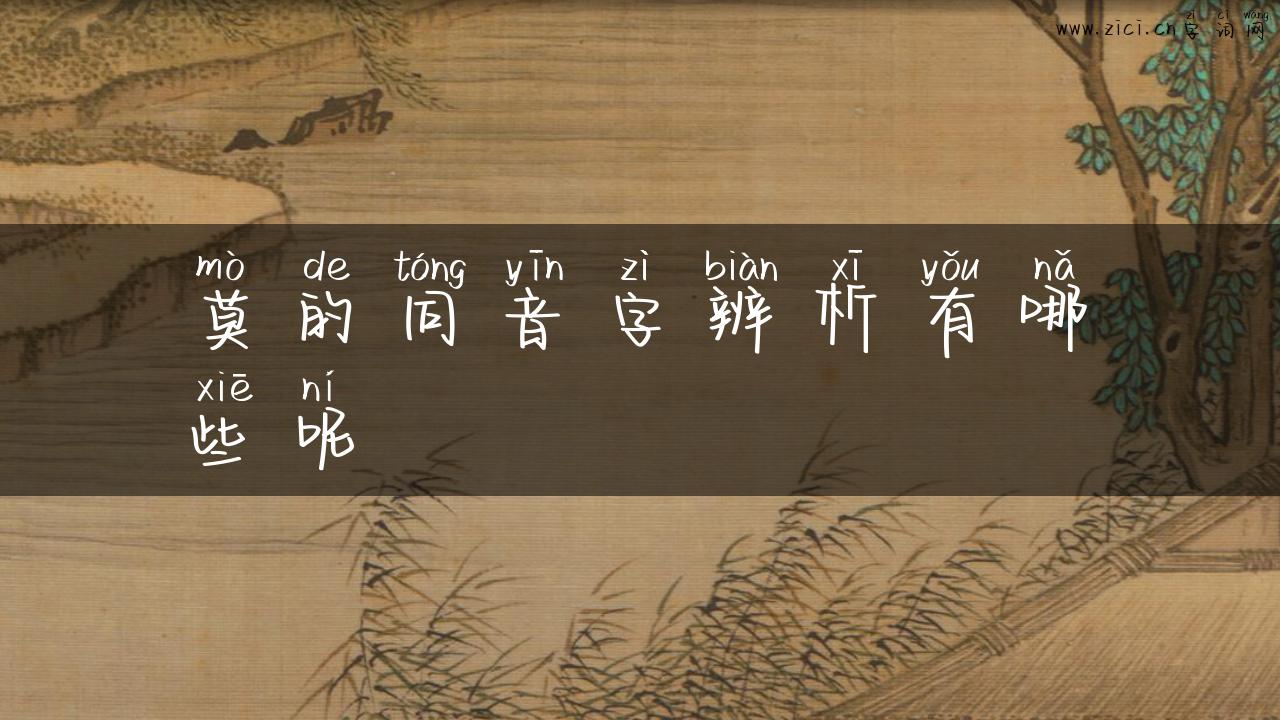 zì cí wǎng
www.zici.cn字词网
mò de tóng yīn zì biàn xī yǒu nǎ
莫的同音字辨析有哪
xiē ní
些呢